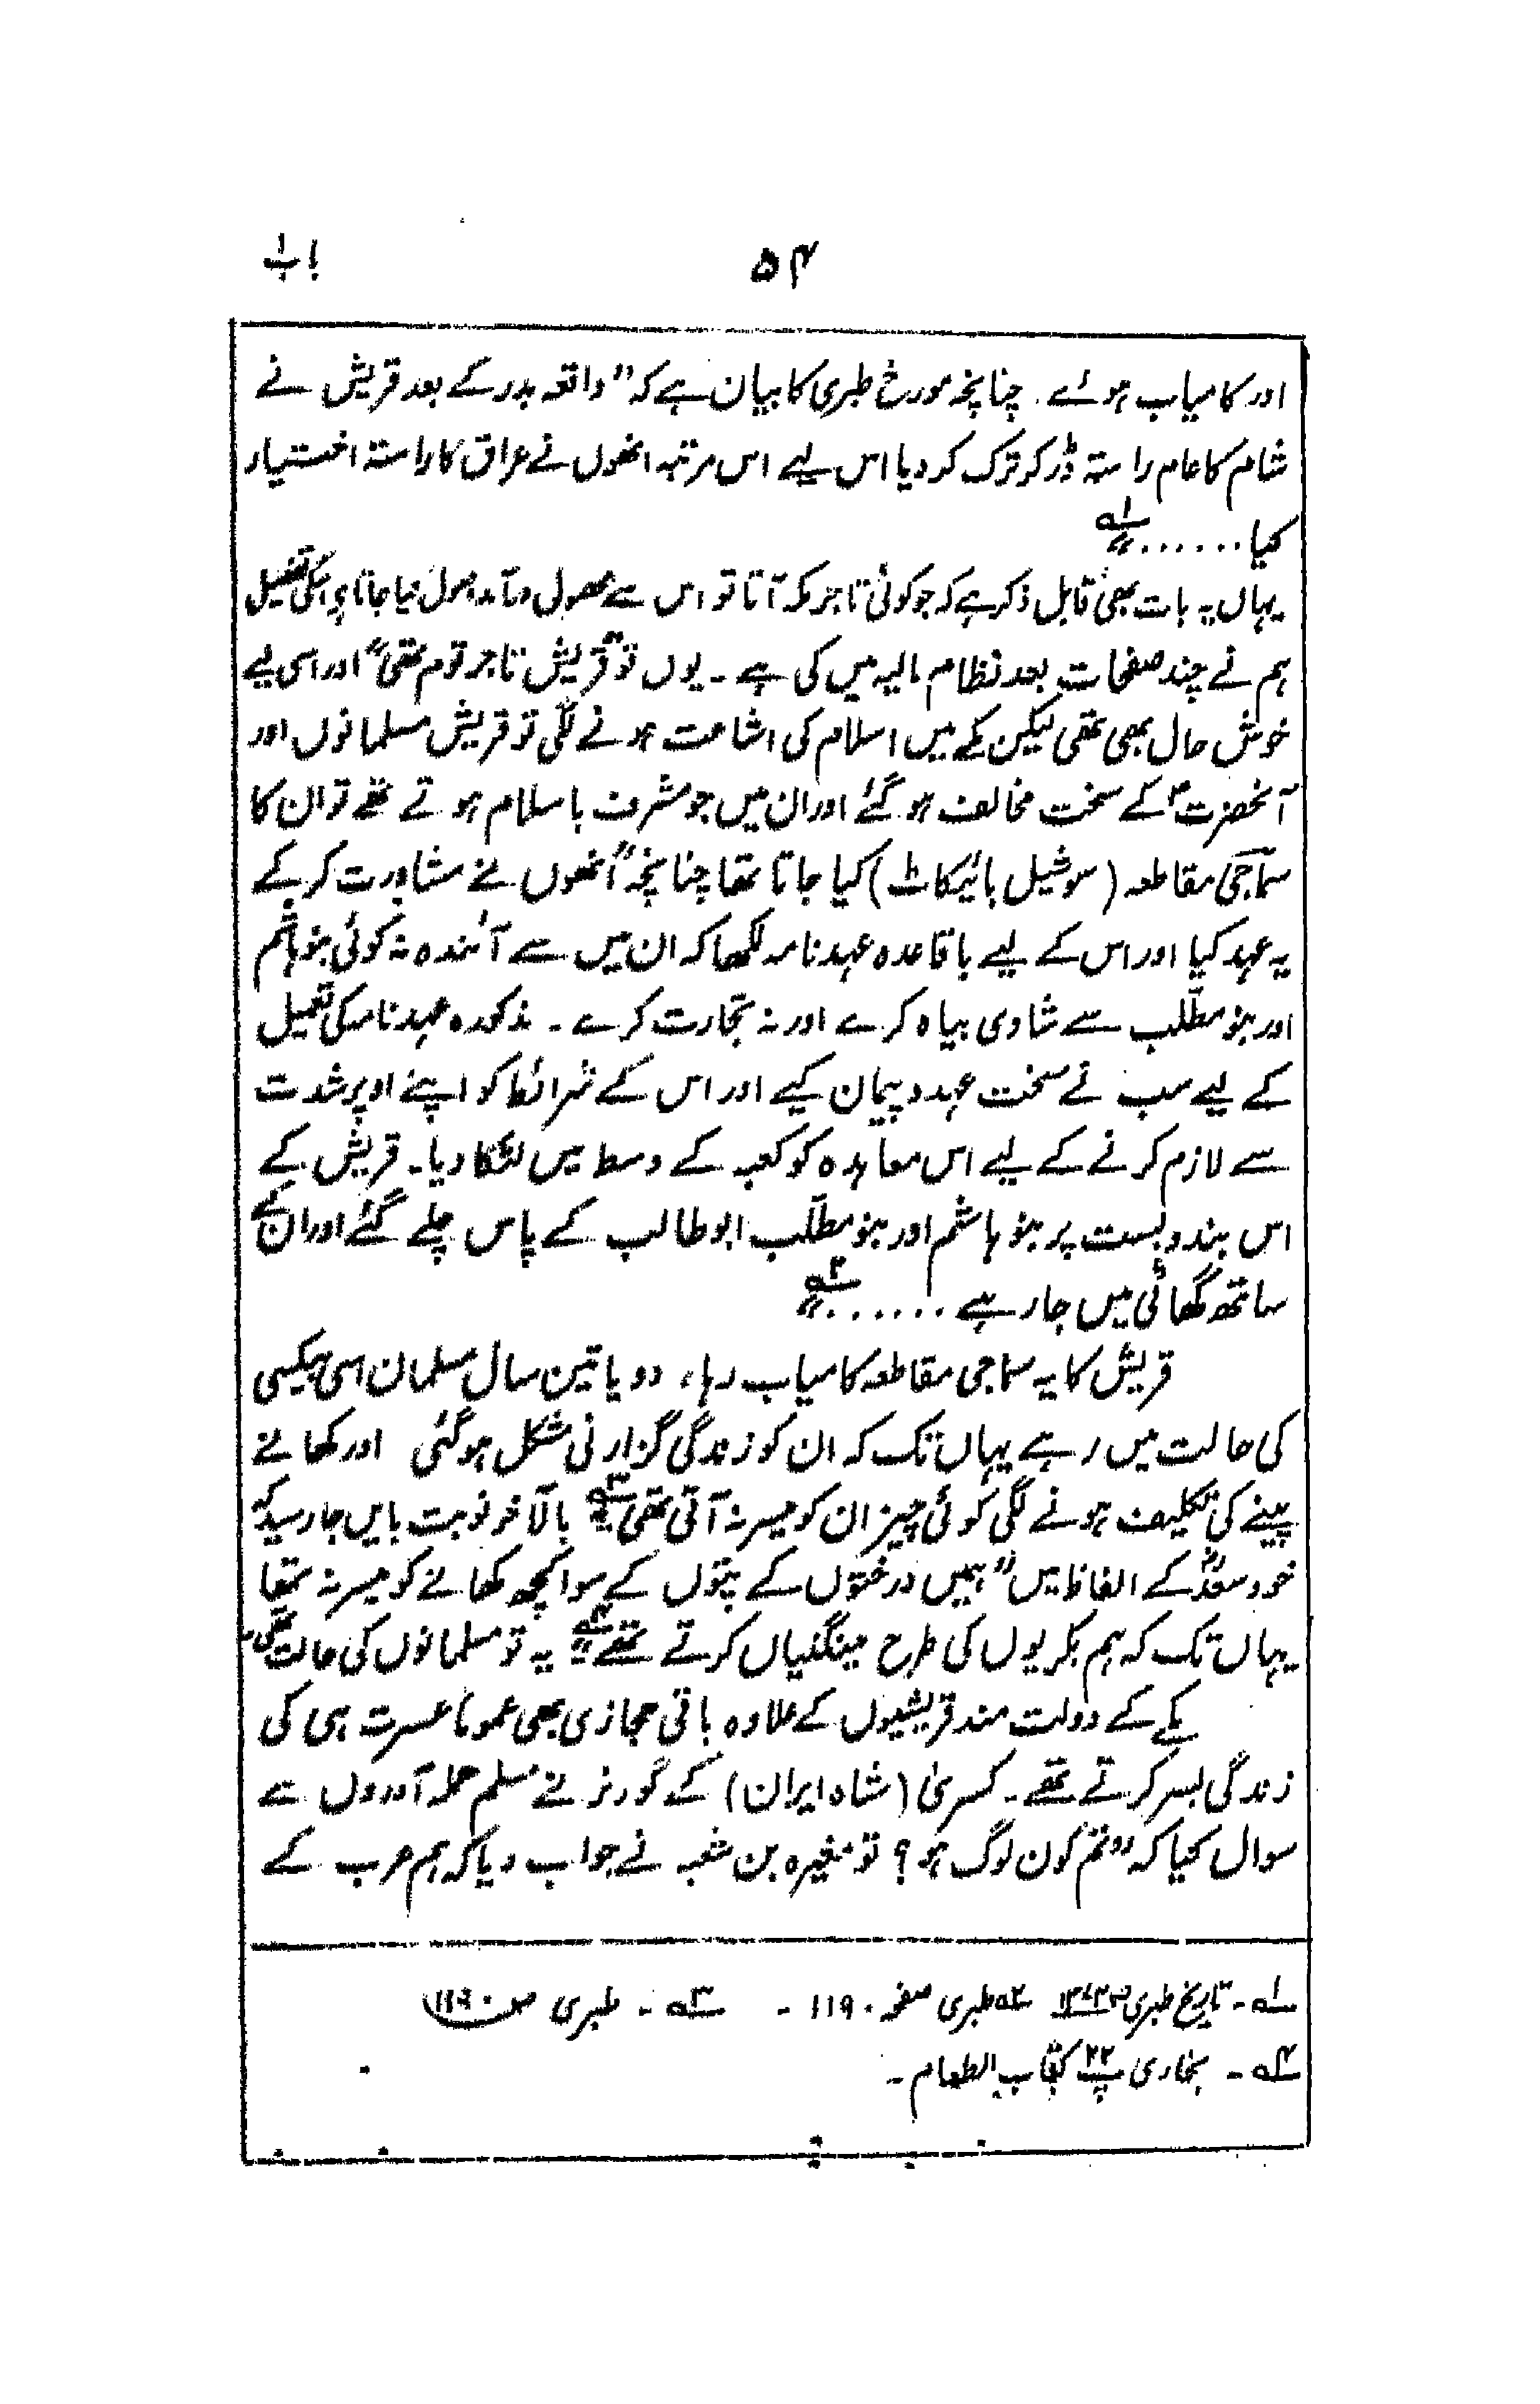 ۵۴ باب۱
اور کامیاب ہوئے۔ چنانچہ مورخ طبری کا بیان ہے کہ "واقعہ بدر کے بعد قریش نے
شام کا عام راستہ ڈر کر ترک کر دیا اس لیے اس مرتبہ انھوں نے عراق کا راستہ اختیار
کیا ......"۱ـہ
یہاں یہ بات بھی قابل ذکر ہے کہ جو کوئی تاجر مکہ آتا تو اس سے محصول درآمد وصول کیا جاتا تفصیل
ہم نے چند صفحات بعد نظام مالیہ میں کی ہے۔ یوں تو "قریش تاجر قوم تھی" اور اسی لیے
خوش حال بھی تھی لیکن مکے میں اسلام کی اشاعت ہونے لگی تو قریش مسلمانوں اور
آنحضرتؐ کے سخت مخالف ہو گئے اور ان میں جو مشرف باسلام ہوتے تھے تو ان کا
سماجی مقاطعہ (سوشیل بائیکاٹ) کیا جاتا تھا چنانچہ "انھوں نے مشاورت کر کے
یہ عہد کیا اور اس کے لیے باقاعدہ عہدنامہ لکھا کہ ان میں سے آئندہ نہ کوئی بنو ہاشم
اور بنو مطلّب سے شادی بیاہ کرے اور نہ تجارت کرے۔ مذکورہ عہدنامہ کی تعمیل
کے لیے سب نے سخت عہد و پیمان کیے اور اس کے شرائط کو اپنے اوپر شدت
سے لازم کرنے کے لیے اس معاہدہ کو کعبہ کے وسط میں لٹکا دیا۔ قریش کے
اس بندوبست پر بنو ہاشم اور بنو مطلّب ابو طالب کے پاس چلے گئے اور ان کے
ساتھ گھاٹی میں جا رہے ......"۲ـہ
قریش کا یہ سماجی مقاطعہ کامیاب رہا، دو یا تین سال مسلمان اسی بیکسی
کی حالت میں رہے یہاں تک کہ ان کو زندگی گزارنی مشکل ہو گئی اور کھانے
پینے کی تکلیف ہونے لگی کوئی چیز ان کو میسر نہ آتی تھی۳ـہ بالآخر نوبت بایں جا رسید کہ
خود سعدؓ کے الفاظ میں "ہمیں درختوں کے پتوں کے سوا کچھ کھانے کو میسر نہ تھا
یہاں تک کہ ہم بکریوں کی طرح مینگنیاں کرتے تھے"۴ـہ یہ تو مسلمانوں کی حالت تھی۔
مکے کے دولت مند قریشیوں کے علاوہ باقی حجازی بھی عموماً عسرت ہی کی
زندگی بسر کرتے تھے۔ کسریٰ (شاہ ایران) کے گورنر نے مسلم حملہ آوروں سے
سوال کیا کہ "تم کون لوگ ہو؟ تو مغیرہ بن شعبہ نے جواب دیا کہ ہم عرب کے
۱ـہ۔ تاریخ طبری ص۱۳۷۴ ۲ـہ طبری صفحہ ۱۱۹۰۔ ۳ـہ۔ طبری ص۱۱۹۰
۴ـہ۔ بخاری پ۲۲ کتاب الطعام۔